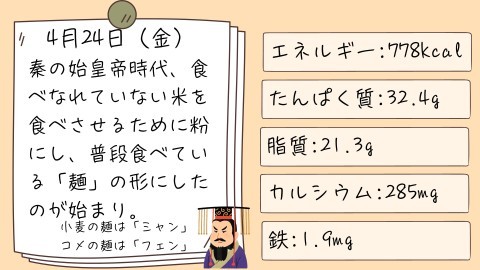 4月24日（金）
秦の始皇帝時代、食
べなれていない米を
食べさせるために粉
にし、普段食べてい
る「麺」の形にした
のが始まり。
小麦の麺は「ミャン」
コメの麺は「フェン」
エネルギー:778kcal
たんぱく質:32.4g
脂質:21.3g
カルシウム:285mg
鉄:1.9mg